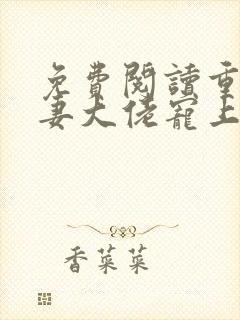 免費閱讀重
妻大佬寵上
香菜菜